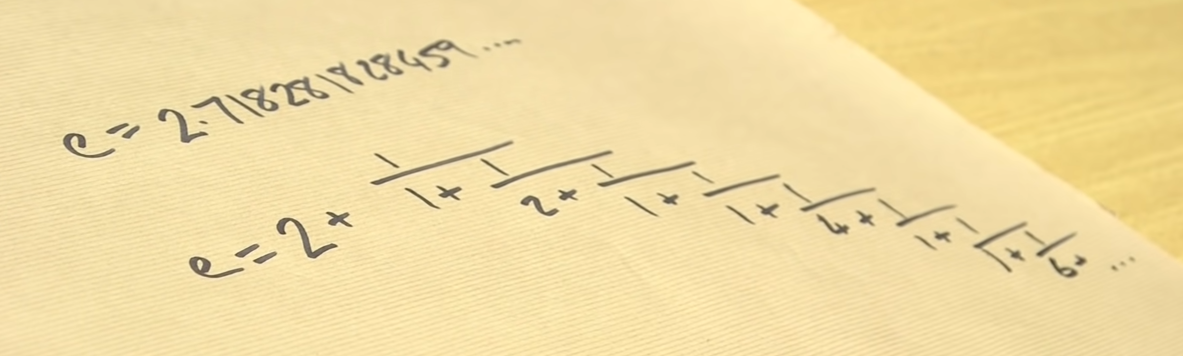 e = 2.718281828459....
e = 2 + 1/(1 + 1/(2 + 1/(1 + 1/(1 + 1/(4 + 1/(1 + 1/(1 + 1/(6 + ...